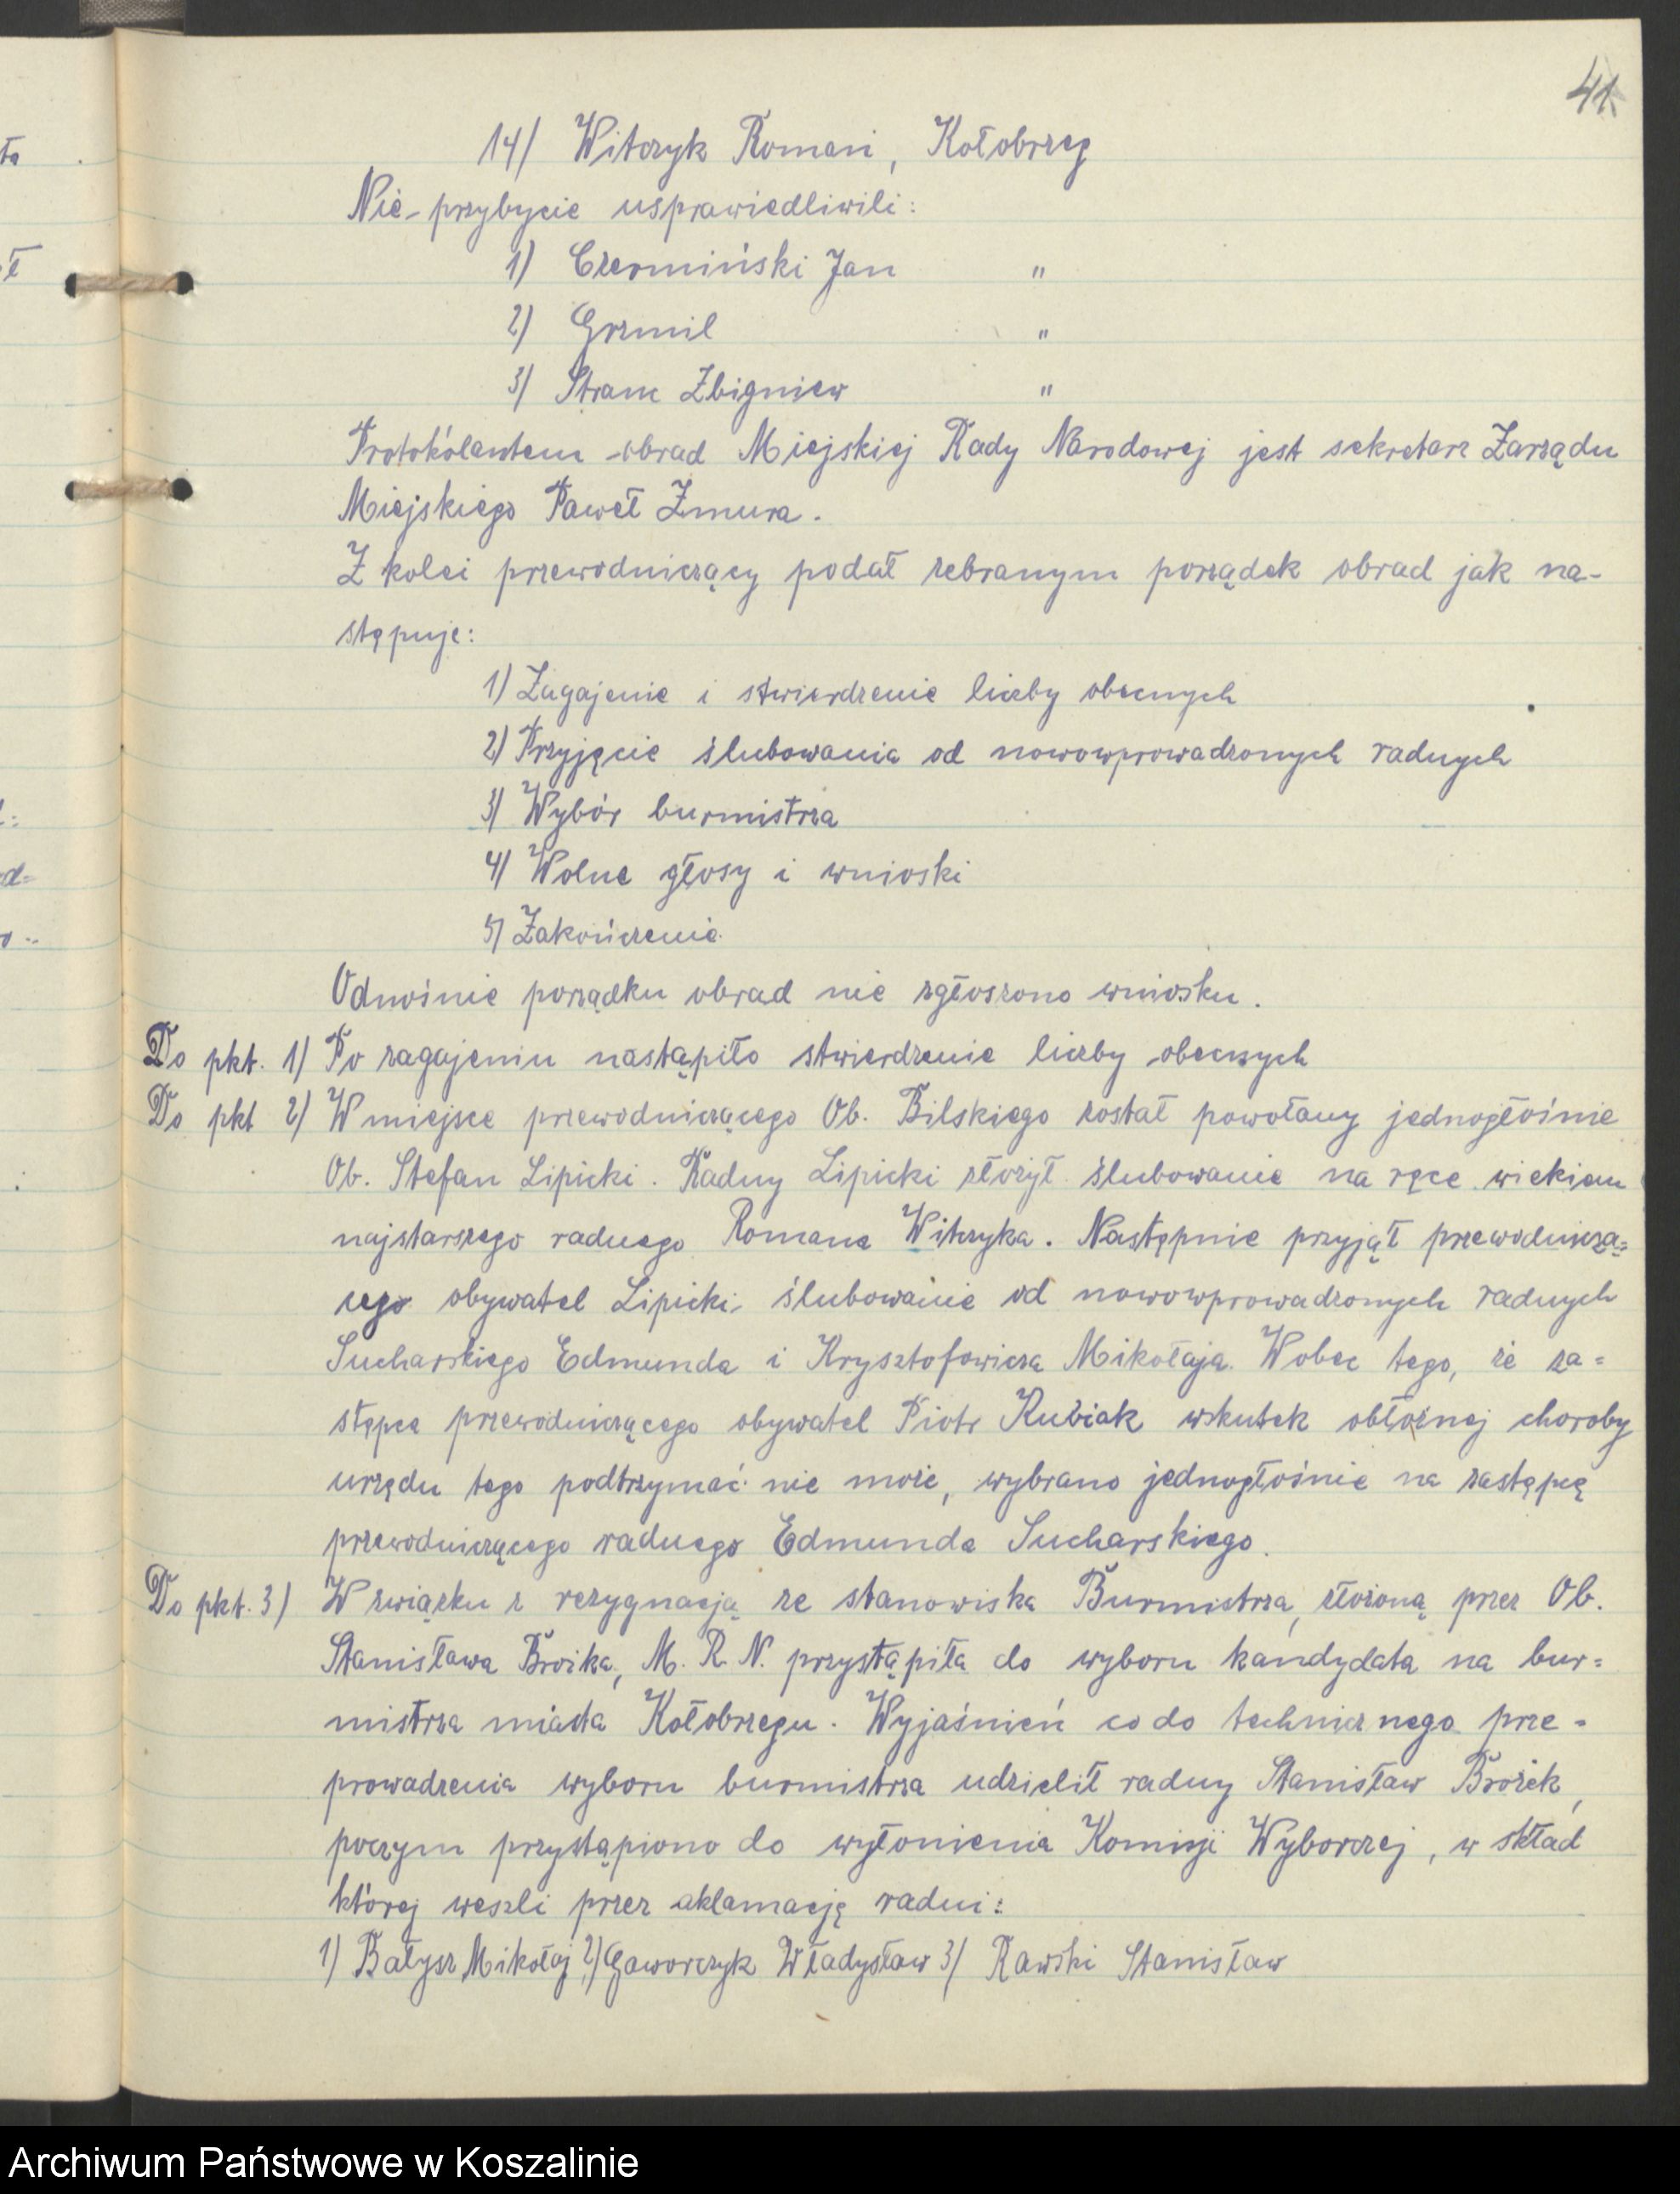 41
14/ Witczyk Roman, Kołobrzeg
Nie-przybycie usprawiedliwili:
1) Czermiński Jan "
2) Grzmil "
3) Stranc Zbigniew "
Protokólantem obrad Miejskiej Rady Narodowej jest sekretarz Zarządu
Miejskiego Paweł Zmura.
Z kolei przewodniczący podał zebranym porządek obrad jak na-
stępuje:
1) Zagajenie i stwierdzenie liczby obecnych
2) Przyjęcie ślubowania od nowowprowadzonych radnych
3) Wybór burmistrza
4) Wolne głosy i wnioski
5) Zakończenie
Odnośnie porządku obrad nie zgłoszono wniosku.
Do pkt. 1) Po zagajeniu nastąpiło stwierdzenie liczby obecnych
Do pkt 2) W miejsce przewodniczącego Ob. Bilskiego został powołany jednogłośnie
Ob. Stefan Lipicki. Radny Lipicki złożył ślubowanie na ręce wiekiem
najstarszego radnego Romana Witczyka. Następnie przyjął przewodniczą=
cego obywatel Lipicki ślubowanie od nowowprowadzonych radnych
Sucharskiego Edmunda i Krysztofowicza Mikołaja. Wobec tego, że za=
stępca przewodniczącego obywatel Piotr Kubiak wskutek obłożnej choroby
urzędu tego podtrzymać nie może, wybrano jednogłośnie na zastępcę
przewodniczącego radnego Edmunda Sucharskiego.
Do pkt. 3) W związku z rezygnacją ze stanowiska Burmistrza, złożoną przez Ob.
Stanisława Brożka, M. R. N. przystąpiła do wyboru kandydata na bur=
mistrza miasta Kołobrzegu. Wyjaśnień co do technicznego prze=
prowadzenia wyboru burmistrza udzielił radny Stanisław Brożek,
poczym przystąpiono do wyłonienia Komisji Wyborczej, w skład
której weszli przez aklamację radni:
1) Bałysz Mikołaj 2) Gaworczyk Władysław 3) Rawski Stanisław
Archiwum Państwowe w Koszalinie